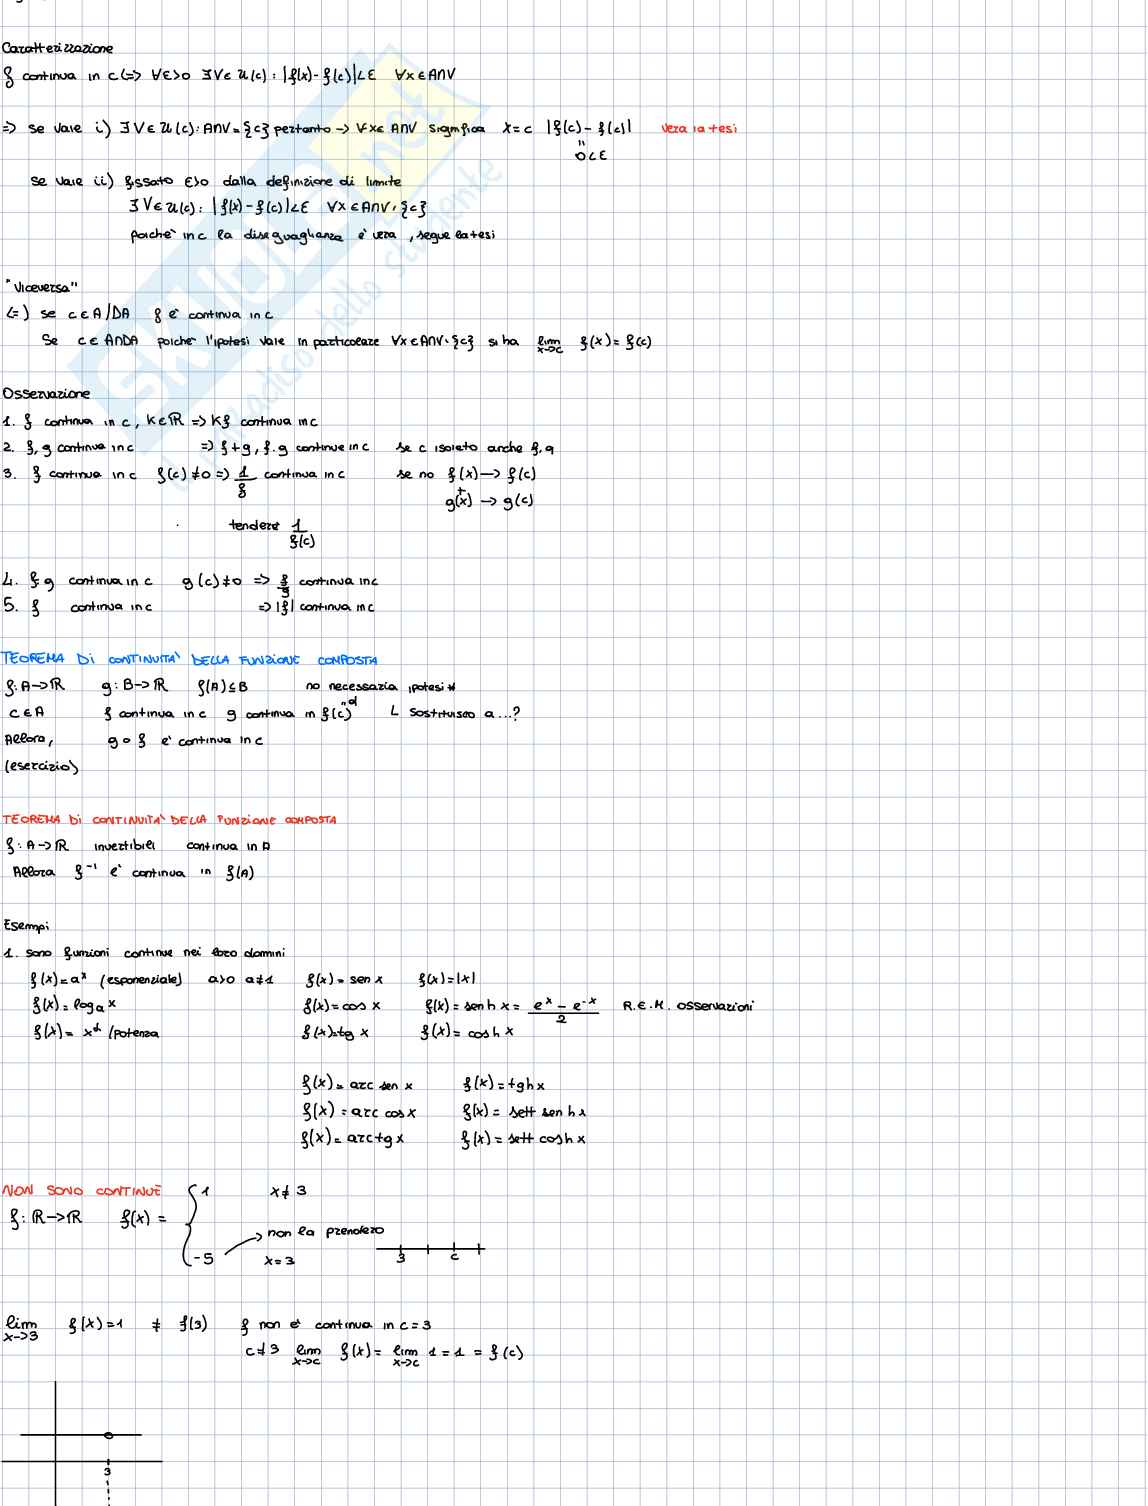 Caratterizzazione
f continua in c <=> ∀ε>0 ∃V∈U(c) : |f(x)-f(c)|<ε ∀x∈A∩V
=> se vale i) ∃V∈U(c): A∩V={c} pertanto -> ∀x∈ A∩V significa x=c |f(c)-f(c)| vera la tesi
"
0<ε
se vale ii) fissato ε>0 dalla definizione di limite
∃V∈U(c): |f(x)-f(c)|<ε ∀x∈A∩V∖{c}
poiché in c la diseguaglianza è vera, segue la tesi
"Viceversa"
<=) se c∈A/DA f è continua in c
Se c∈A∩DA poiché l'ipotesi vale in particolare ∀x∈A∩V∖{c} si ha lim x->c f(x)=f(c)
Osservazione
1. f continua in c, K∈ℝ => Kf continua in c
2. f,g continua in c => f+g, f·g continue in c se c isolato anche f,g
3. f continua in c f(c)≠0 => 1/f continua in c se no f(x)->f(c)
+
g(x) -> g(c)
tendere 1/f(c)
4. f g continua in c g(c)≠0 => f/g continua in c
5. f continua in c => |f| continua in c
TEOREMA Di CONTINUITA' DELLA FUNZIONE COMPOSTA
f: A->ℝ g: B->ℝ f(A)⊆B no necessaria ipotesi *
c∈A f continua in c g continua in f(c) "d L Sostituisco a...?
Allora, g∘f è continua in c
(esercizio)
TEOREMA Di CONTINUITA' DELLA FUNZIONE COMPOSTA
f: A->ℝ invertibile continua in A
Allora f⁻¹ è continua in f(A)
Esempi
1. sono funzioni continue nei loro domini
f(x)=aˣ (esponenziale) a>0 a≠1 f(x)= sen x f(x)=|x|
f(x)= logₐx f(x)=cos x f(x)= senh x = eˣ - e⁻ˣ / 2 R.E.M. osservazioni
f(x)= x^α /potenza f(x)=tg x f(x)= cosh x
f(x)= arc sen x f(x)=tgh x
f(x) = arc cos x f(x)= sett senh x
f(x)= arctg x f(x)= sett cosh x
NON SONO CONTINUE { 1 x≠3
f: ℝ->ℝ f(x) =
-> non la prendero
-5 x=3 3 c
lim x->3 f(x)=1 ≠ f(3) f non è continua in c=3
c≠3 lim x->c f(x)= lim x->c 1=1 = f(c)
3
SKUOLA.net
il paradiso dello studente